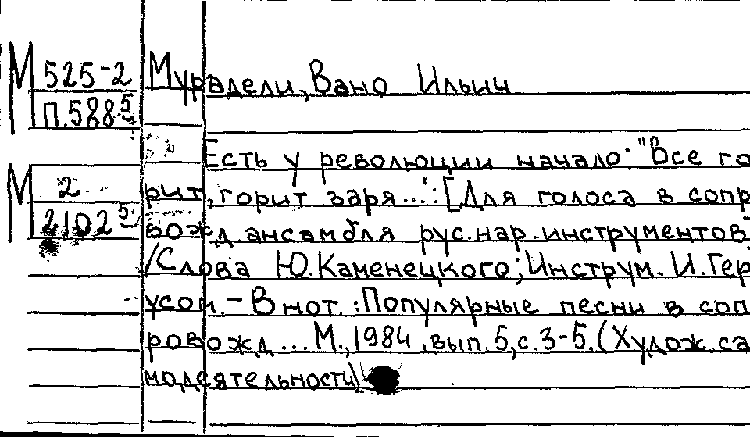 М 525-2 Мурадели, Вано Ильич
П.5885
Есть у революции начало. "Все го
М 2 рит, горит заря...": [Для голоса в сопр
21025 вожд. ансамбля рус. нар. инструментов]
/Слова Ю. Каменецкого; Инструм. И. Гер
усои. – В нот.: Популярные песни в соп
ровожд... М., 1984, вып. 5, с. 3-5. (Худож. са
модеятельность)